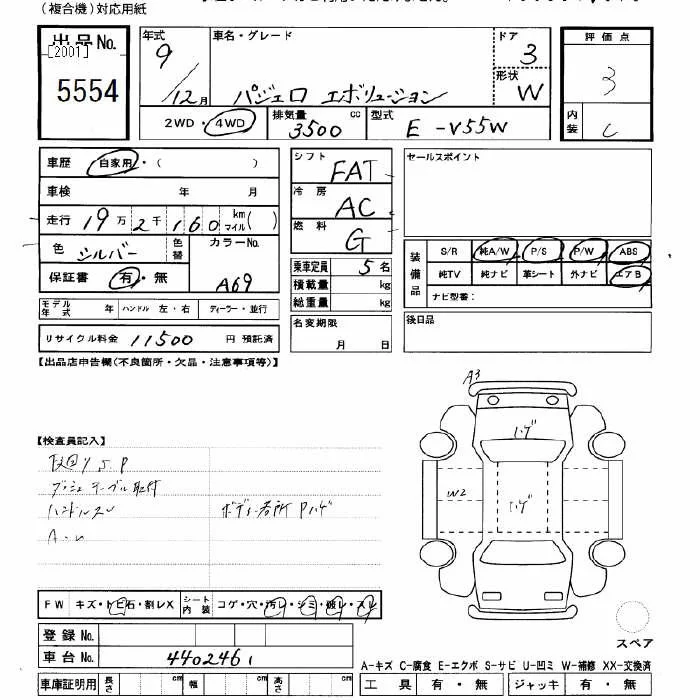 (複合機)対応用紙
出品No.
[2001]
5554
年式 車名・グレード ドア
9/12月 パジェロ エボリューション 3
形状 W
2WD・4WD 排気量 3500 cc 型式 E-V55W
評価点
3
内装 C
車歴 自家用・( )
車検 年 月
走行 19万2千160 km マイル( )
色 シルバー 色替 カラーNo.
保証書 有・無 A69
モデル年式 年 ハンドル 左・右 ディーラー・並行
リサイクル料金 11500 円 預託済
シフト FAT
冷房 AC
燃料 G
乗車定員 5名
積載量 kg
総重量 kg
名変期限
月 日
セールスポイント
装備品
S/R 純A/W P/S P/W ABS
純TV 純ナビ 革シート 外ナビ エアB
ナビ型番:
後日品
【出品店申告欄(不良箇所・欠品・注意事項等)】
【検査員記入】
ハンドルスレ ボディ各所 Pハゲ
A3
ハゲ
W2
ハゲ
FW キズ・トビ石・割レX シート内装 コゲ・穴・汚レ・シミ・破レ・スレ
登録No.
車台No. 4402461
車庫証明用 長さ cm 幅 cm 高さ cm
スペア
A-キズ C-腐食 E-エクボ S-サビ U-凹ミ W-補修 XX-交換済
工具 有・無 ジャッキ 有・無